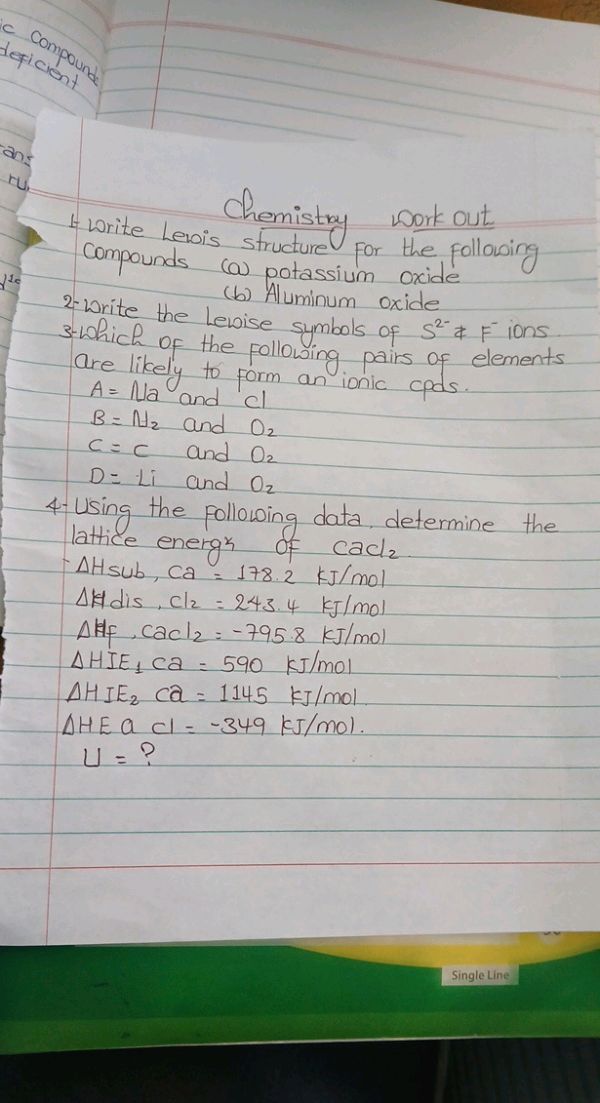 ic Compounds
deficient
Chemistry work out
1- Write Lewis structure for the following
Compounds (a) potassium oxide
(b) Aluminum oxide
2- Write the Lewise symbols of S²⁻ & F⁻ ions.
3- Which of the following pairs of elements
are likely to form an ionic cpds.
A = Na and Cl
B = N₂ and O₂
C = C and O₂
D = Li and O₂
4- Using the following data, determine the
lattice energy of cacl₂.
ΔHsub, ca = 178.2 KJ/mol
ΔHdis, Cl₂ = 243.4 KJ/mol
ΔHf, cacl₂ = -795.8 KJ/mol
ΔHIE₁ ca = 590 KJ/mol
ΔHIE₂ ca = 1145 KJ/mol
ΔHEa cl = -349 KJ/mol.
U = ?
Single Line